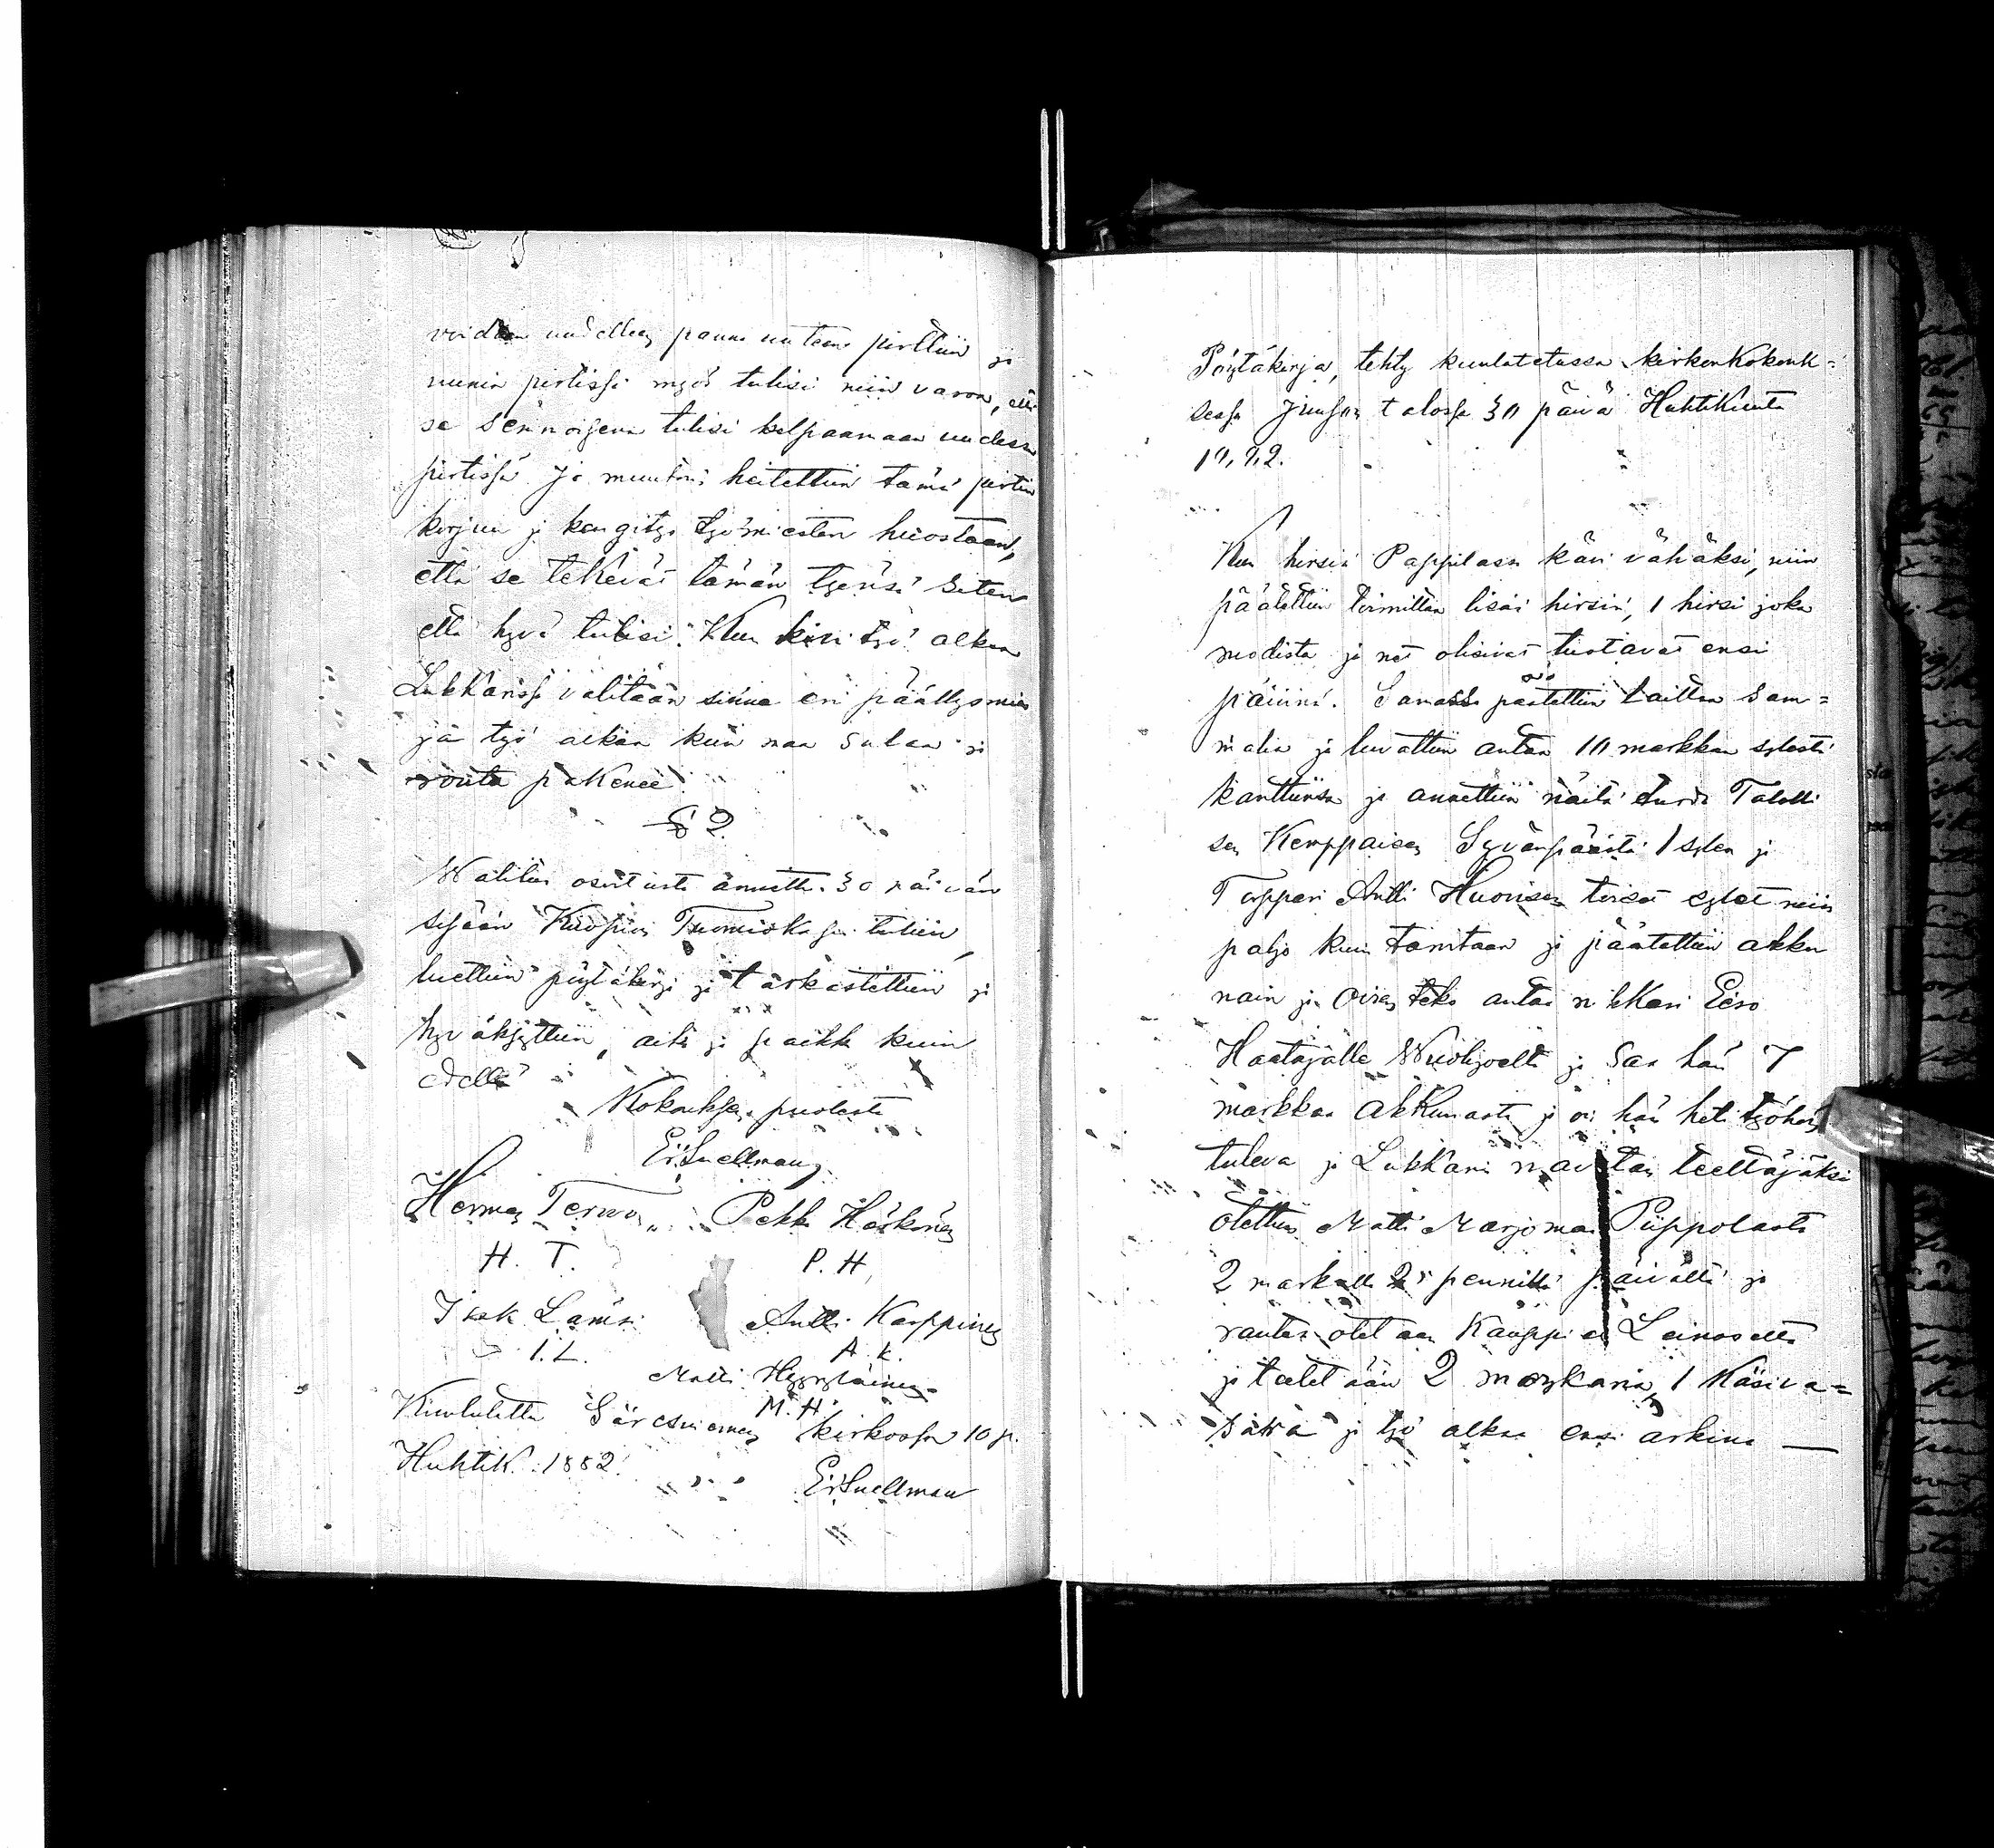 voidaan uudelleen panna uuteen pirttiin ja
uunin pirtissä myös tulisi niin varoa, että
se semmoisena tulisi kelpaamaan uudessa
pirtissä. Ja muutoin heitettiin tämä pirtin
korjuu ja kengitys työmiesten huostaan,
että se tekevät tämän työnsä siten
että hyvä tulisi. Kun kivi työ alkaa
Lukkarissa valitaan sinne eri päällysmies
ja työ alkaa kuin maa sulaa ja
routa pakenee.
§ 2
Walitus osoitusta annettu 30 päivän
sisään Kuopion Tuomiokapituliin,
luettiin pöytäkirja ja tarkastettiin ja
hyväksyttiin, aika ja paikka kuin
edellä
Kokouksen puolesta
E. Snellman
Herman Tervo, Pekka Härkönen
H. T. P. H.
Isak Lämsä Antti Karppinen
I. L. A. K.
Matti Hyyryläinen
M. H.
Kuulutettu Säresniemen kirkossa 10 p.
Huhtik. 1882.
E. Snellman
Pöytäkirja, tehty kuulutetussa kirkonkokouk=
sessa Juuson talossa 30 päivä Huhtikuuta
1882.
Kun hirsiä Pappilassa kävi vähäksi, niin
päätettiin toimittaa lisää hirsiä, 1 hirsi joka
ruodista ja net olisivat tuotavat ensi
päivinä. Samassa päätettiin laittaa sam=
malia ja luvattiin antaa 10 markkaa sylestä
kanttiinsa ja annettiin näitä
sen Kemppaisen Syvänpäästä 1 sylen ja
Torppari Antti Huovisen toiset sylet niin
paljo kuin tarvitaan ja päätettiin akku
nain ja ovien teko antaa nikkari Eero
Haatajalle Wuolijoelta ja saa hän 7
markkaa akkunasta ja on hän heti työhön
tuleva ja Lukkarin navetan teettäjäksi
otettiin Matti Marjomaa Piippolasta
2 markalla 25 penniltä päivältä ja
rautaa otetaan Kauppias Leinoselta
ja teetetään 2 morkaria, 1 käsiva=
sara ja työ alkaa ensi arkina —